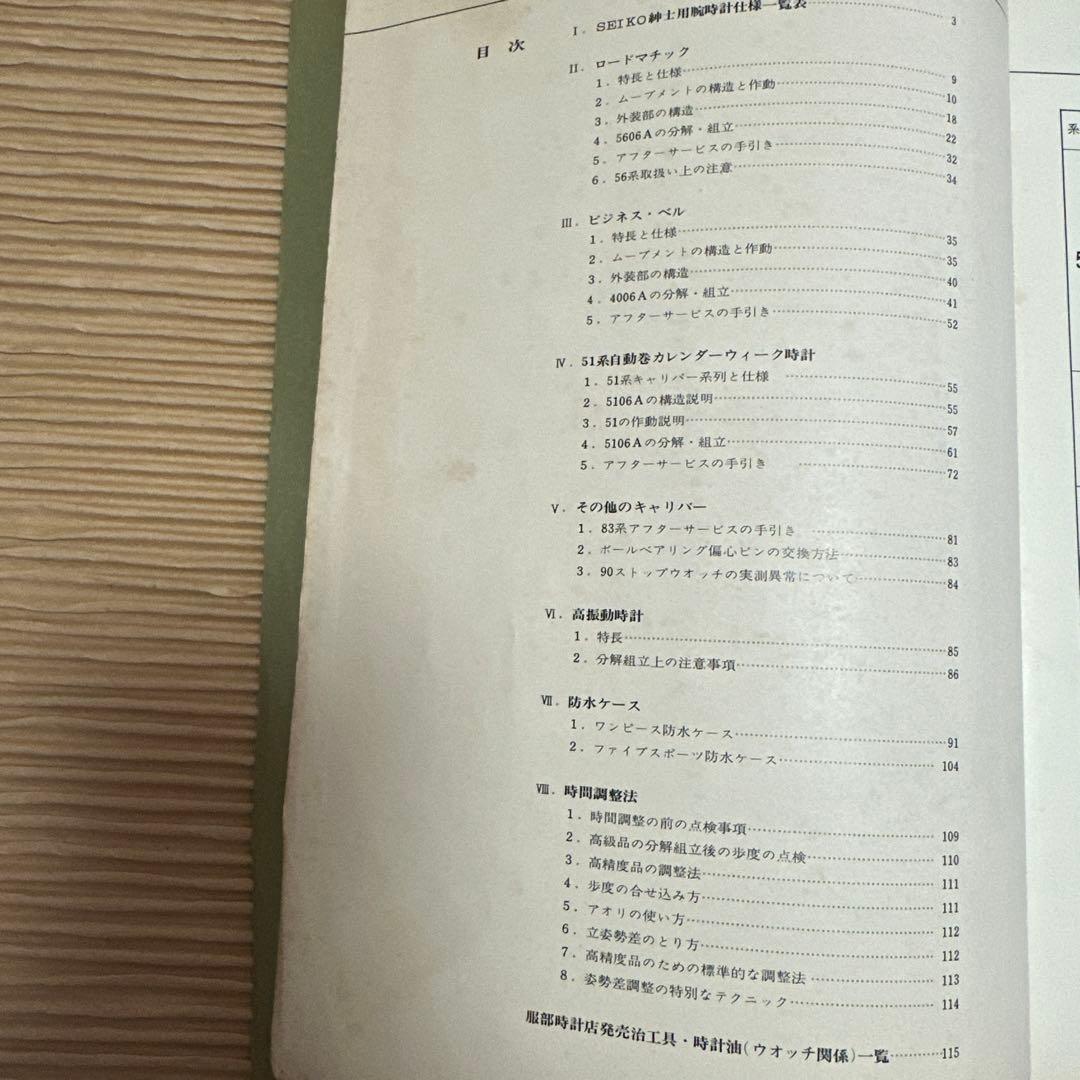 目次
I. SEIKO紳士用腕時計仕様一覧表 3
II. ロードマチック
1. 特長と仕様 9
2. ムーブメントの構造と作動 10
3. 外装部の構造 18
4. 5606Aの分解・組立 22
5. アフターサービスの手引き 32
6. 56系取扱い上の注意 34
III. ビジネス・ベル
1. 特長と仕様 35
2. ムーブメントの構造と作動 35
3. 外装部の構造 40
4. 4006Aの分解・組立 41
5. アフターサービスの手引き 52
IV. 51系自動巻カレンダーウィーク時計
1. 51系キャリバー系列と仕様 55
2. 5106Aの構造説明 55
3. 51の作動説明 57
4. 5106Aの分解・組立 61
5. アフターサービスの手引き 72
V. その他のキャリバー
1. 83系アフターサービスの手引き 81
2. ボールベアリング偏心ピンの交換方法 83
3. 90ストップウオッチの実測異常について 84
VI. 高振動時計
1. 特長 85
2. 分解組立上の注意事項 86
VII. 防水ケース
1. ワンピース防水ケース 91
2. ファイブスポーツ防水ケース 104
VIII. 時間調整法
1. 時間調整の前の点検事項 109
2. 高級品の分解組立後の歩度の点検 110
3. 高精度品の調整法 111
4. 歩度の合せ込み方 111
5. アオリの使い方 112
6. 立姿勢差のとり方 112
7. 高精度品のための標準的な調整法 113
8. 姿勢差調整の特別なテクニック 114
服部時計店発売治工具・時計油(ウオッチ関係)一覧 115
系